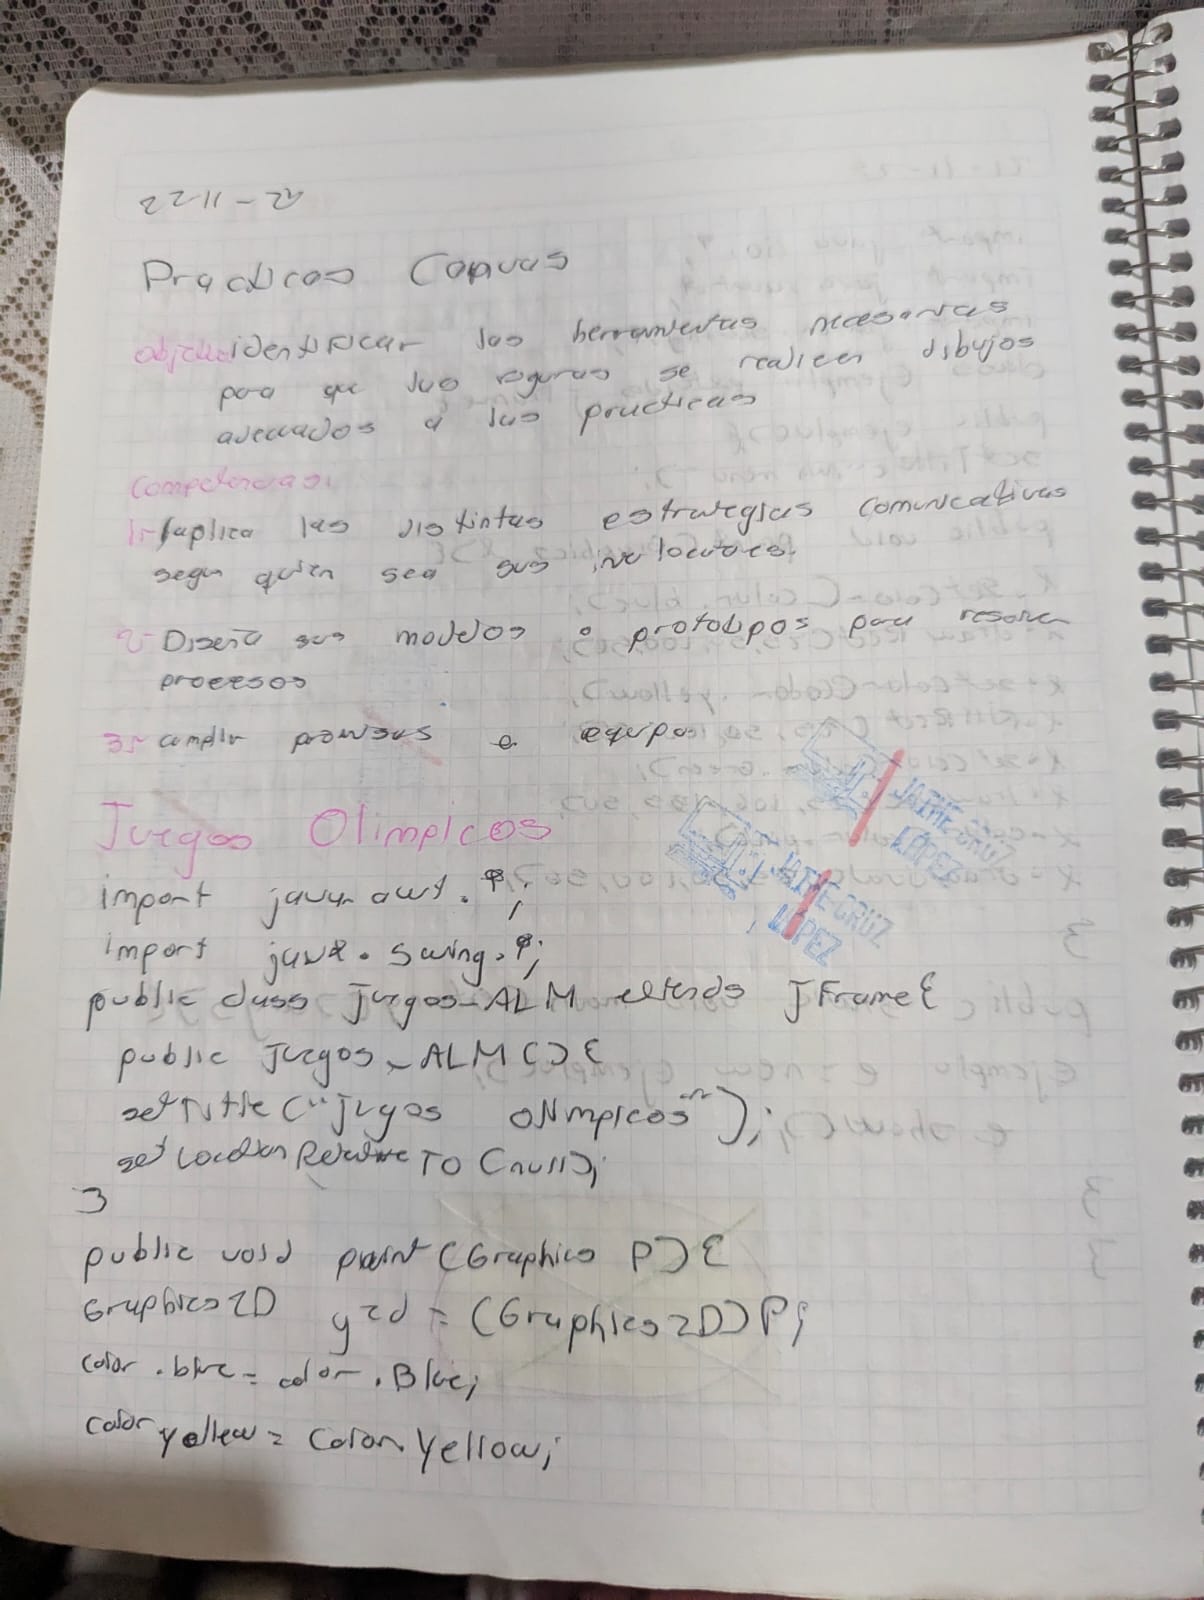 22-11-22
Practicas Canvas
objetivo identificar las herramientas necesarias
para que las figuras se realicen dibujos
adecuados a las practicas
Competencias:
1.- aplica las distintas estrategias comunicativas
segun quien sea sus
2- Diseña sus modelos o prototipos para resolver
procesos
3.- cumplir e equipos
Juegos Olimpicos
import java.awt.*;
import javax.swing.*;
public class Juegos_ALM extends JFrame{
public Juegos_ALM(){
setTitle("Jugos olimpicos");
setLocationRelativeTo(null);
}
public void paint(Graphics P){
Graphics2D g2d = (Graphics2D)P;
color.blue = color.Blue;
color yellow = Color.Yellow;
JAIME CRUZ
LÓPEZ
JAIME CRUZ
LÓPEZ